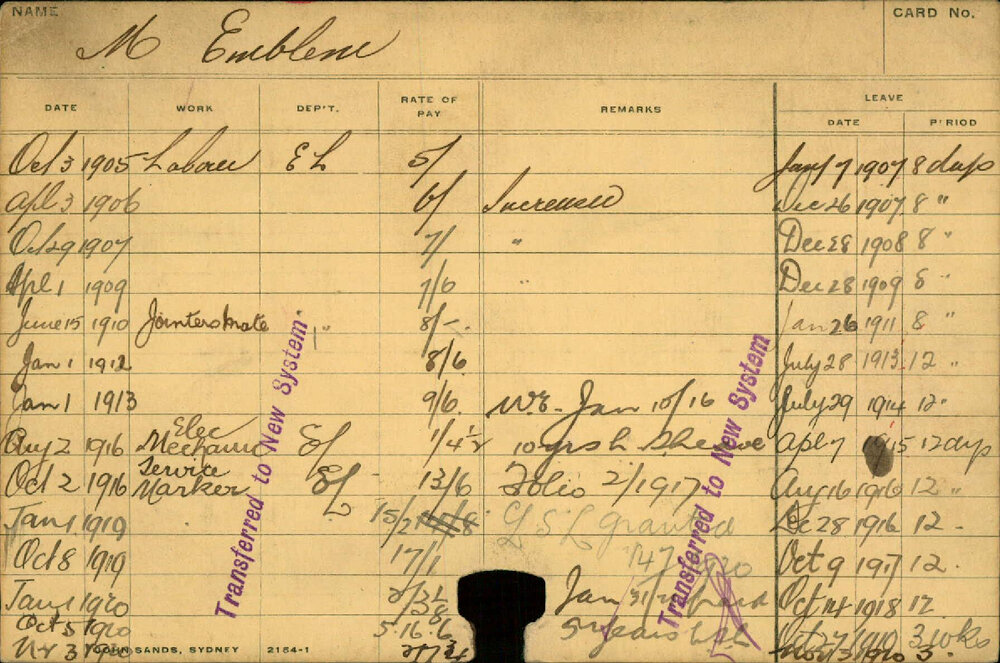 NAME
CARD No.
M Emblem
DATE WORK DEP'T. RATE OF PAY REMARKS LEAVE
DATE PERIOD
Oct 3 1905 Labour EL 5/ Jany 7 1907 8 days
Apl 3 1906 6/ Increased Dec 26 1907 8 "
Oct 29 1907 7/ " Dec 28 1908 8 "
Apl 1 1909 7/6 " Dec 28 1909 8 "
June 15 1910 Jointers Mate " 8/-. Jan 26 1911 8 "
Jan 1 1912 8/6 July 28 1913 12 "
Jan 1 1913 9/6 WE- Jan 10/16 July 29 1914 12 "
Aug 2 1916 Elec Mechanic EL 1/4½ 10 yrs L. Apl 7 1915 12 days
Oct 2 1916 Service Marker EL 13/6 Folio 2/1917 Aug 16 1916 12 "
Jan 1 1919 15/2 LSL Granted Dec 28 1916 12 "
Oct 8 1919 17/1 Oct 9 1917 12 "
Jan 1 1920 Jan Oct 14 1918 12
Oct 5 1920 5.16.6 5 years 3 wks
Nov 3 1920 Nov 3 1920 3
Transferred to New System
Transferred to New System
JOHN SANDS, SYDNEY 2154-1